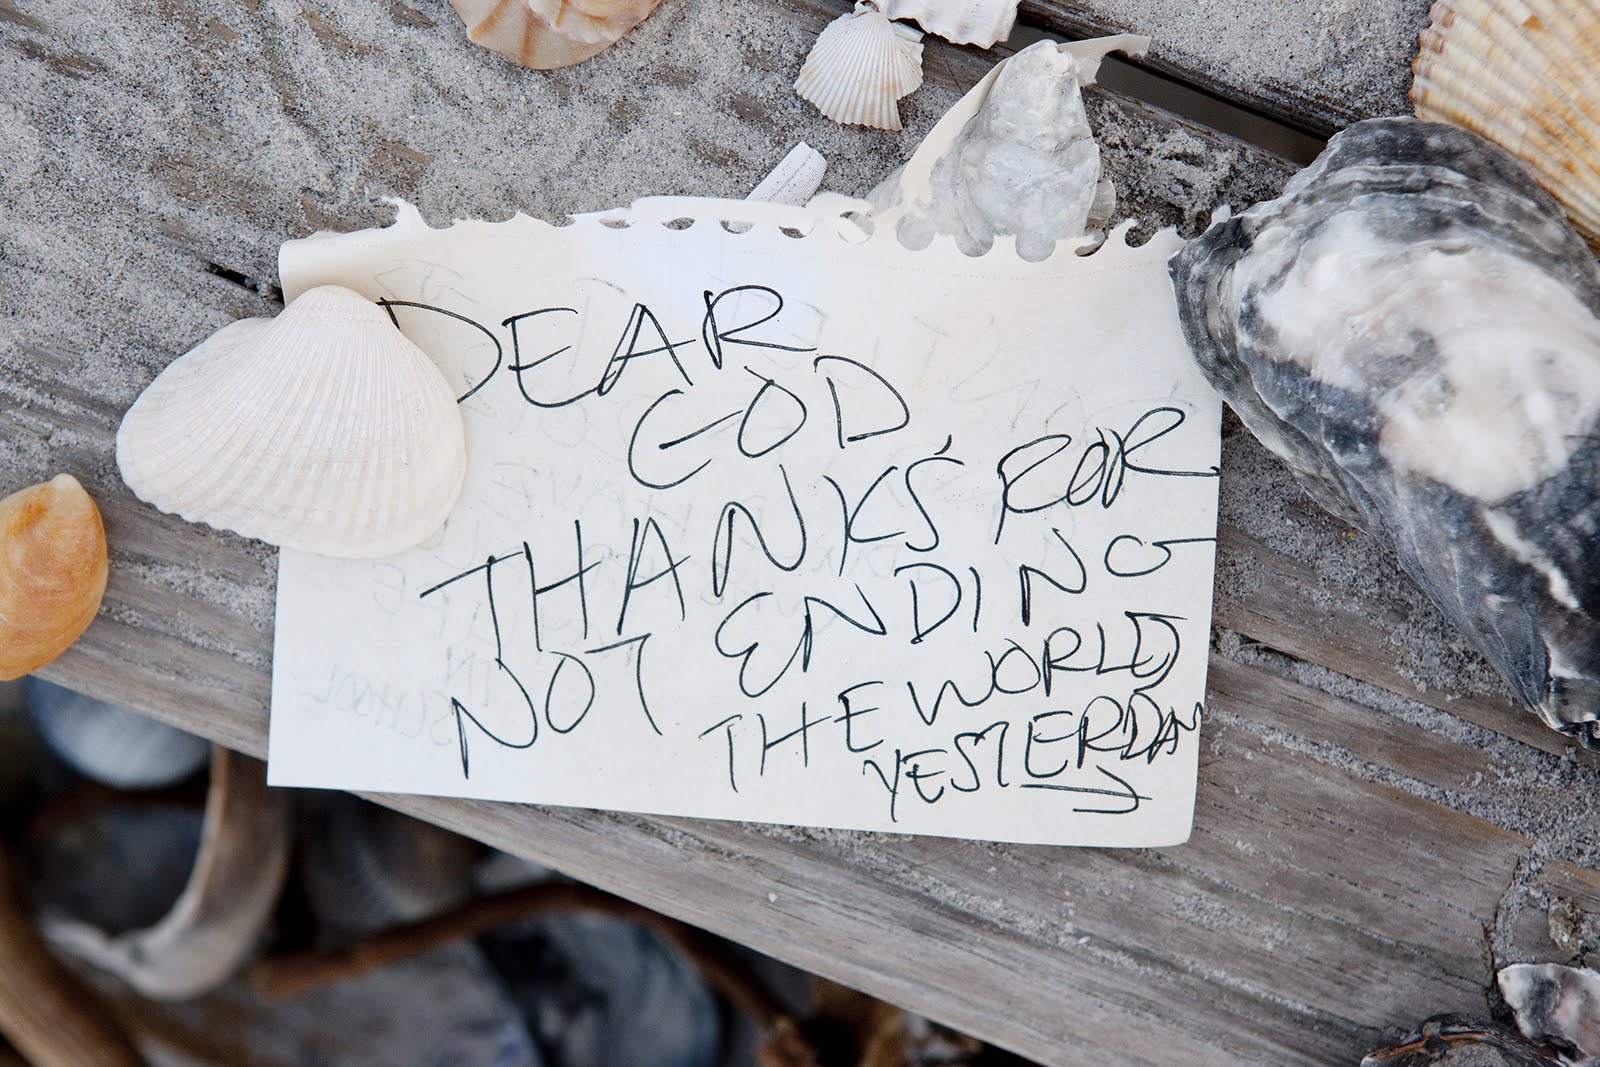 DEAR
GOD
THANKS FOR
NOT ENDING
THE WORLD
YESTERDAY